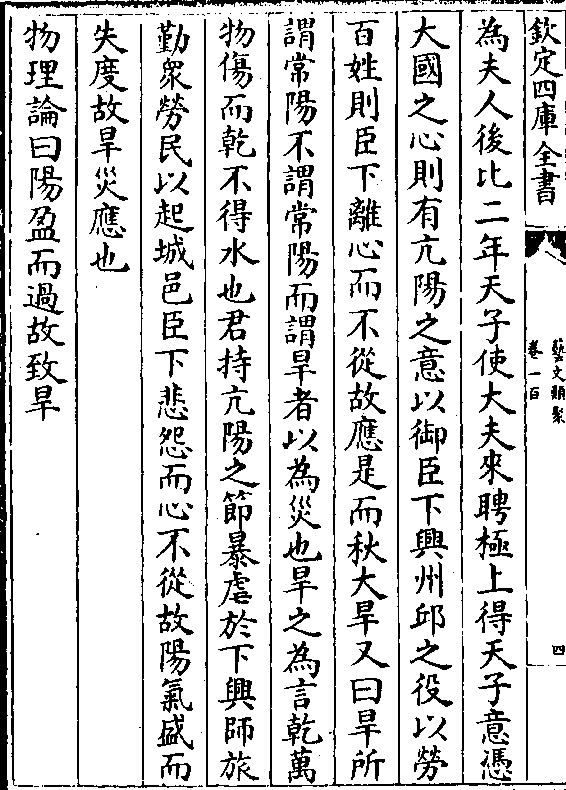 欽定四庫全書
藝文類聚
卷一百
四
為夫人後比二年天子使大夫來聘極上得天子意憑
大國之心則有亢陽之意以御臣下興州邱之役以勞
百姓則臣下離心而不從故應是而秋大旱又曰旱所
謂常陽不謂常陽而謂旱者以為災也旱之為言乾萬
物傷而乾不得水也君持亢陽之節暴虐於下興師旅
勤衆勞民以起城邑臣下悲怨而心不從故陽氣盛而
失度故旱災應也
物理論曰陽盈而過故致旱